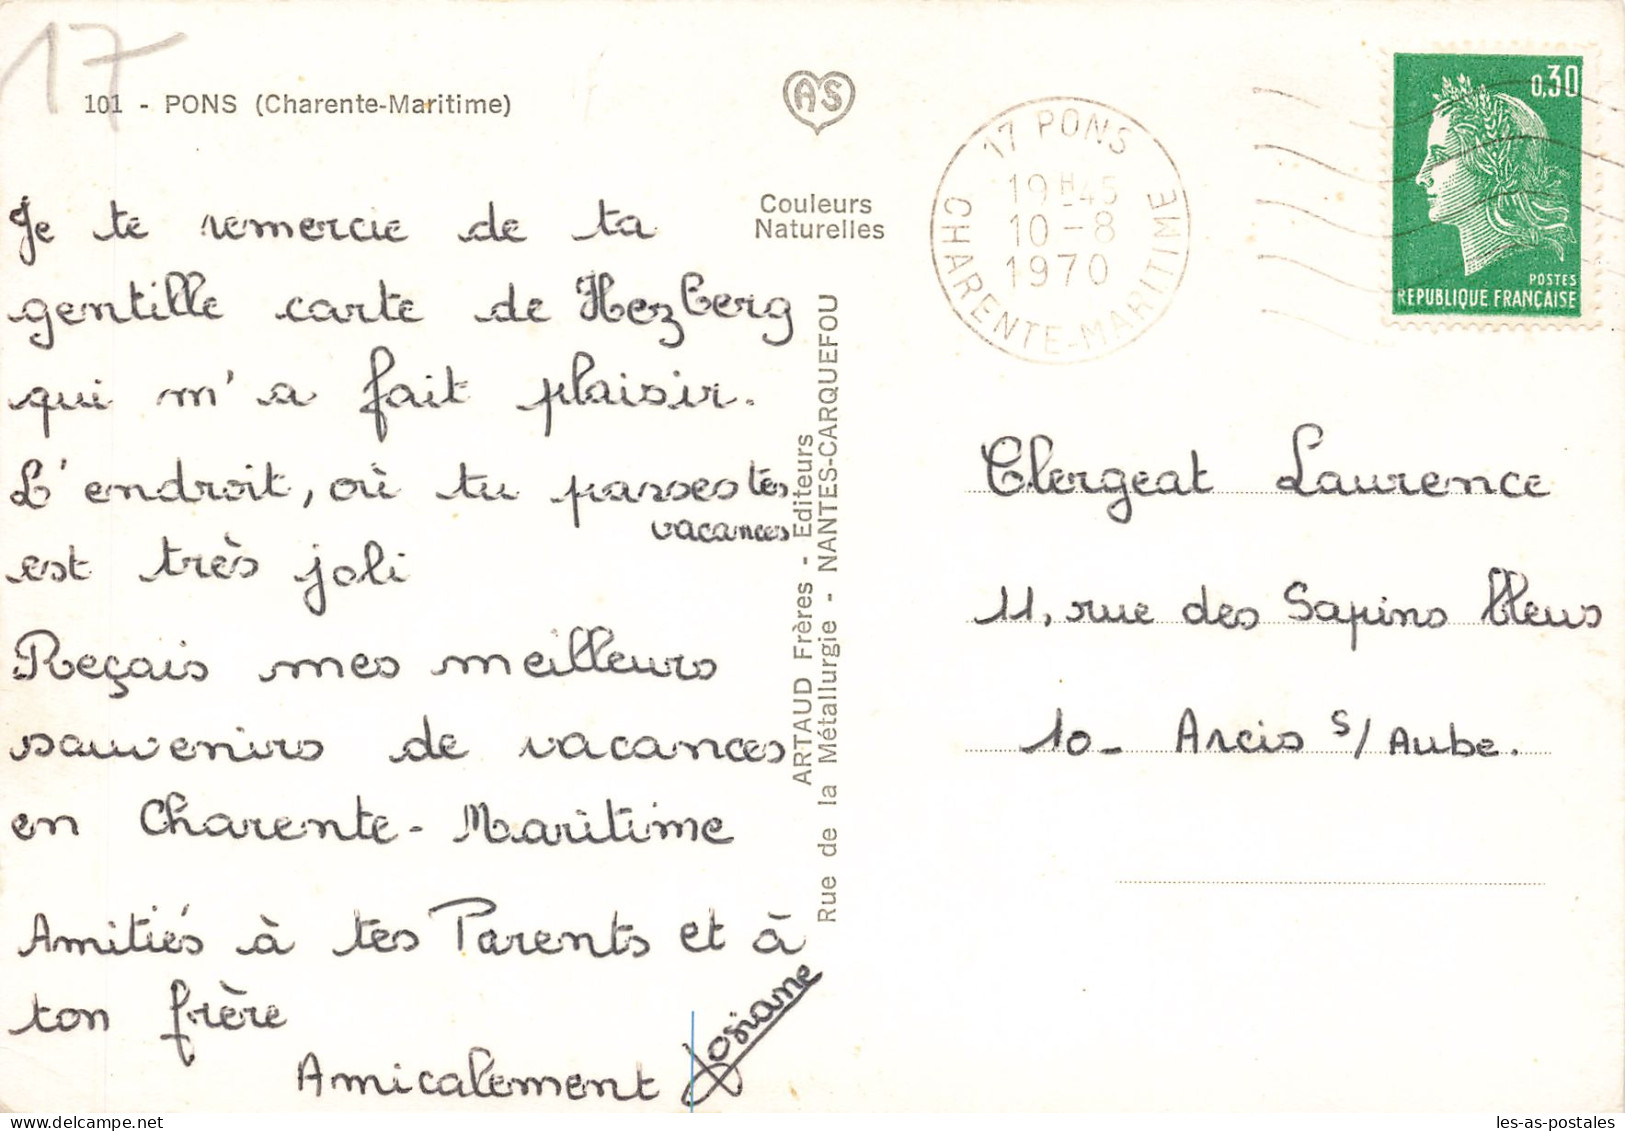 17
101 - PONS (Charente-Maritime)
AS
Couleurs
Naturelles
Je te remercie de ta
gentille carte de Herzberg
qui m'a fait plaisir.
L'endroit, où tu passes tes
vacances
est très joli
Reçais mes meilleurs
souvenirs de vacances
en Charente-Maritime
Amitiés à tes Parents et à
ton frère
Amicalement Josiane
ARTAUD Frères - Editeurs
Rue de la Métallurgie - NANTES-CARQUEFOU
17 PONS
19H45
10-8
1970
CHARENTE-MARITIME
0,30
POSTES
REPUBLIQUE FRANÇAISE
Clergeat Laurence
11, rue des Sapins bleus
10- Arcis s/ Aube.
les-as-postales